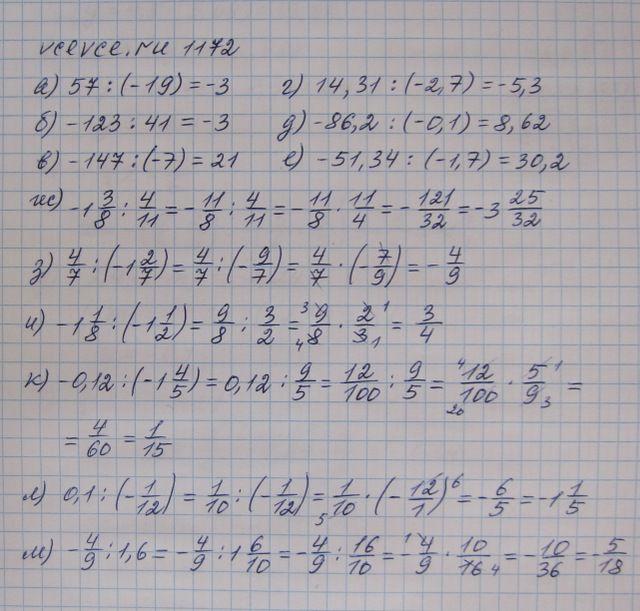 vcevce.ru 1172
а) 57 : (-19) = -3    г) 14,31 : (-2,7) = -5,3
б) -123 : 41 = -3    д) -86,2 : (-0,1) = 8,62
в) -147 : (-7) = 21    е) -51,34 : (-1,7) = 30,2
ж) -1 3/8 : 4/11 = -11/8 : 4/11 = -11/8 · 11/4 = -121/32 = -3 25/32
з) 4/7 : (-1 2/7) = 4/7 : (-9/7) = 4/7 · (-7/9) = -4/9
и) -1 1/8 : (-1 1/2) = 9/8 : 3/2 = ³9/₄8 · 2¹/3₁ = 3/4
к) -0,12 : (-1 4/5) = 0,12 : 9/5 = 12/100 : 9/5 = ⁴12/₂₀100 · 5¹/9₃ =
= 4/60 = 1/15
л) 0,1 : (-1/12) = 1/10 : (-1/12) = 1/₅10 · (-12/1)⁶ = -6/5 = -1 1/5
м) -4/9 : 1,6 = -4/9 : 1 6/10 = -4/9 : 16/10 = -¹4/9 · 10/16₄ = -10/36 = -5/18